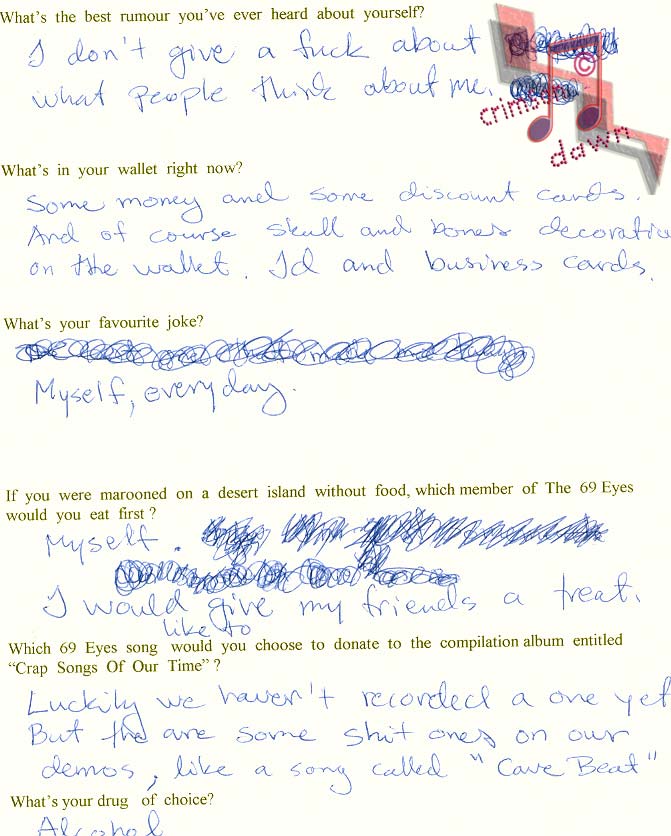 What's the best rumour you've ever heard about yourself?
I don't give a fuck about
what people think about me.
©
crimson
dawn
What's in your wallet right now?
Some money and some discount cards.
And of course skull and bones decoratio
on the wallet. Id and business cards.
What's your favourite joke?
Myself, everyday.
If you were marooned on a desert island without food, which member of The 69 Eyes
would you eat first ?
Myself.
I would give my friends a treat.
like to
Which 69 Eyes song would you choose to donate to the compilation album entitled
“Crap Songs Of Our Time” ?
Luckily we haven't recorded a one yet
But the are some shit ones on our
demos, like a song called "Cave Beat"
What's your drug of choice?
Alcohol